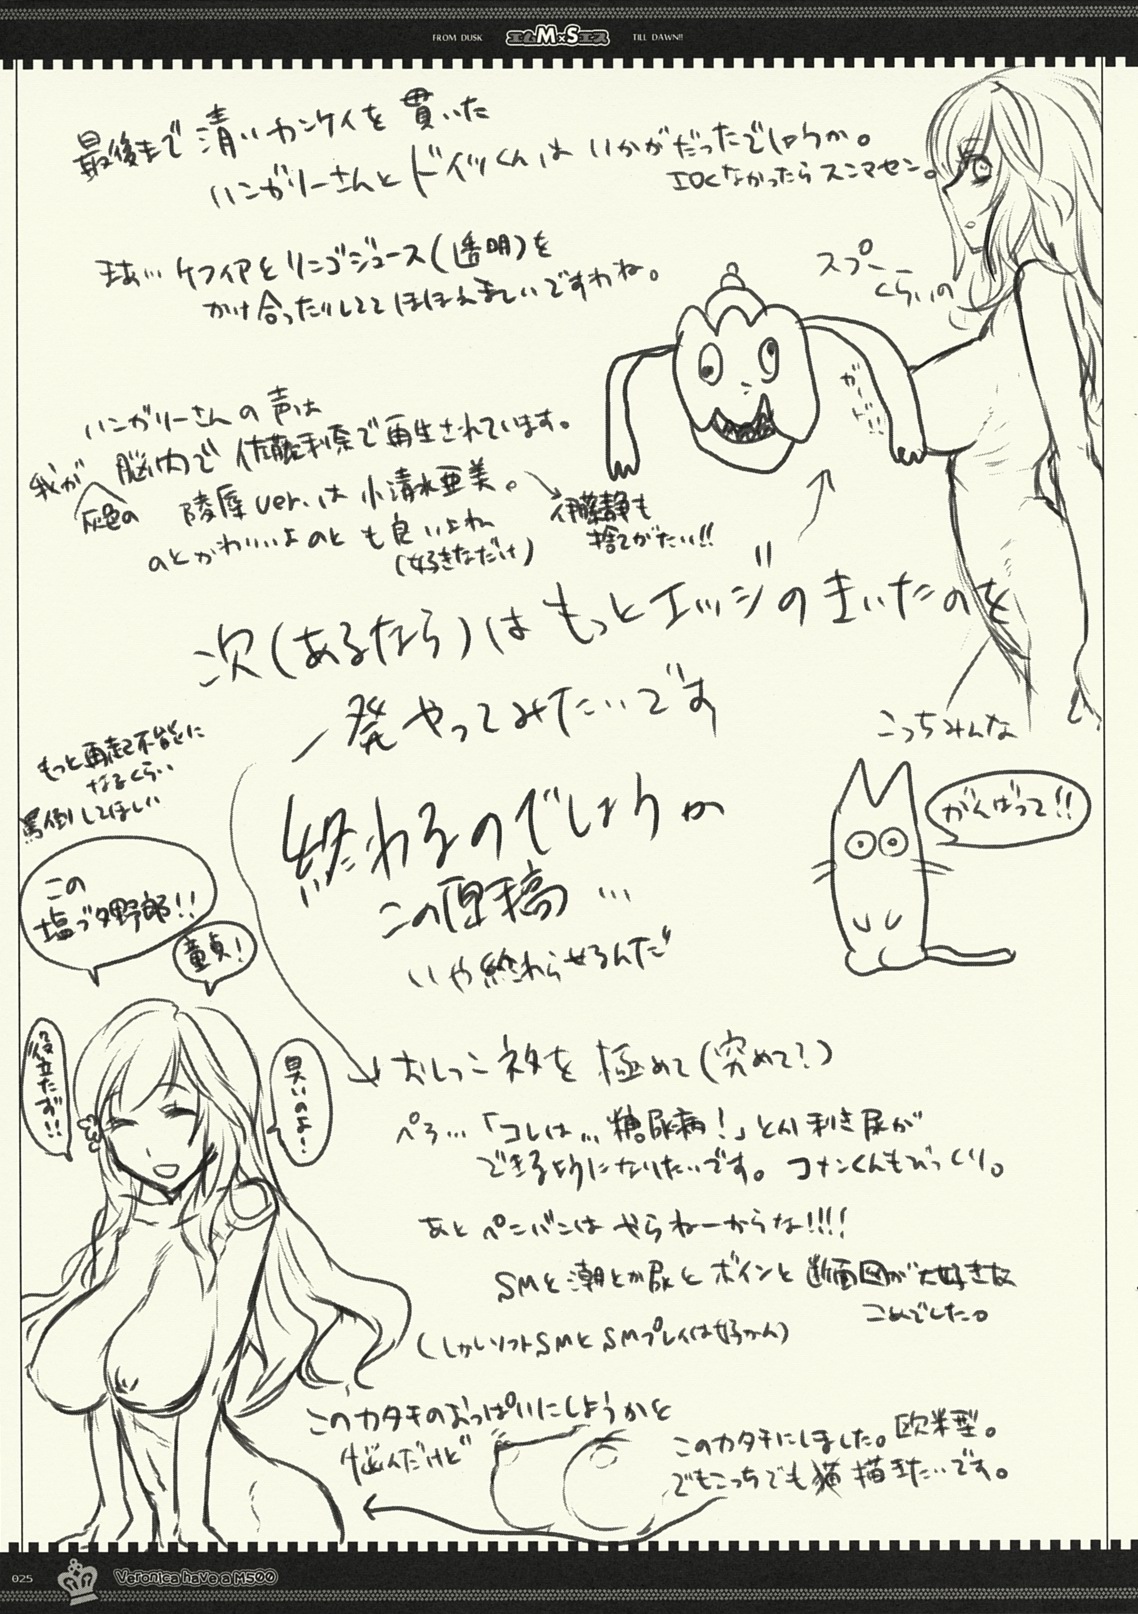 FROM DUSK
エムM×Sエス
TILL DAWN!!
最後まで清いカンケイを貫いた
ハンガリーさんとドイツくんはいかがだったでしょうか。
エロくなかったらスンマセン。
まあ… ケフィアとリンゴジュース(透明)を
かけ合ったりしててほほえましいですわね。
スプー
くらいの
ハンガリーさんの声は
我が脳内で佐藤利奈で再生されています。
灰色の
陵辱ver.は小清水亜美。
のとかわいいよのとも良いよね
(好きなだけ)
伊藤静も
捨てがたい!!
次(あるなら)はもっとエッジのきいたのを
一発やってみたいです
こっちみんな
がんばって!!
もっと再起不能に
なるくらい
罵倒してほしい
この
塩ブタ野郎!!
童貞!
役立たず!!
臭いのよ!
終わるのでしょうか
この原稿…
いや終わらせるんだ
おしっこネタを極めて(究めて?)
ペろ…「コレは…糖尿病!」とか利き尿が
できるようになりたいです。コナンくんもびっくり。
あとペニバンはやらねーからな!!!!
SMと潮とか尿とボインと断面図が大好きな
こめでした。
(しかしソフトSMとSMプレイは好かん)
このカタチのおっぱいにしようかと
悩んだけど
このカタチにしました。欧米型。
でもこっちでも猫描きたいです。
025
Veronica have a M500